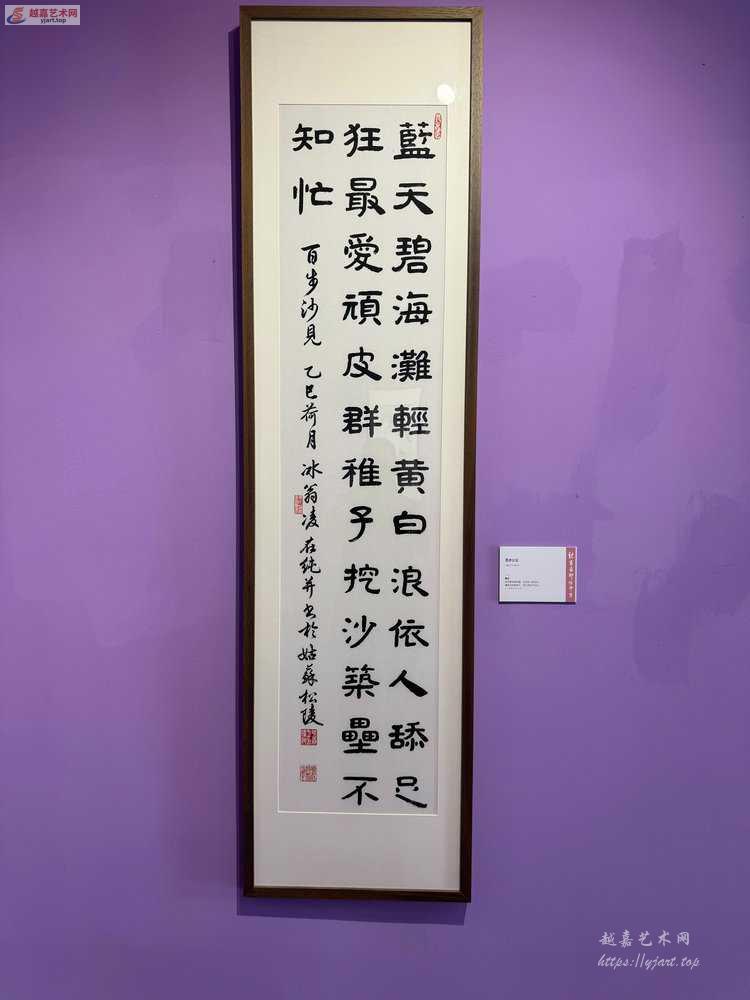 越嘉艺术网
yjart.top
藍天碧海灘輕黄白浪依人舔足
狂最愛頑皮群稚子挖沙築壘不
知忙
百步沙見 乙巳荷月 冰翁凌在纯并书於姑蘇松陵
越嘉艺术网
https://yjart.top